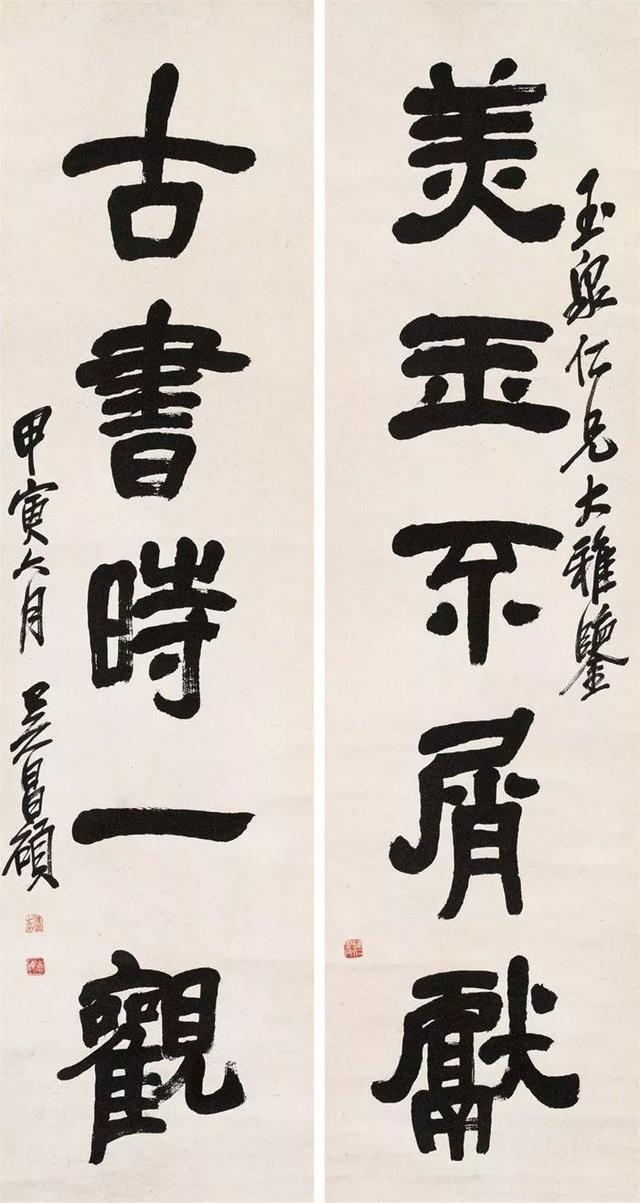 玉泉仁兄大雅鑒
美玉不屑獻
古書時一觀
甲寅六月 吳昌碩